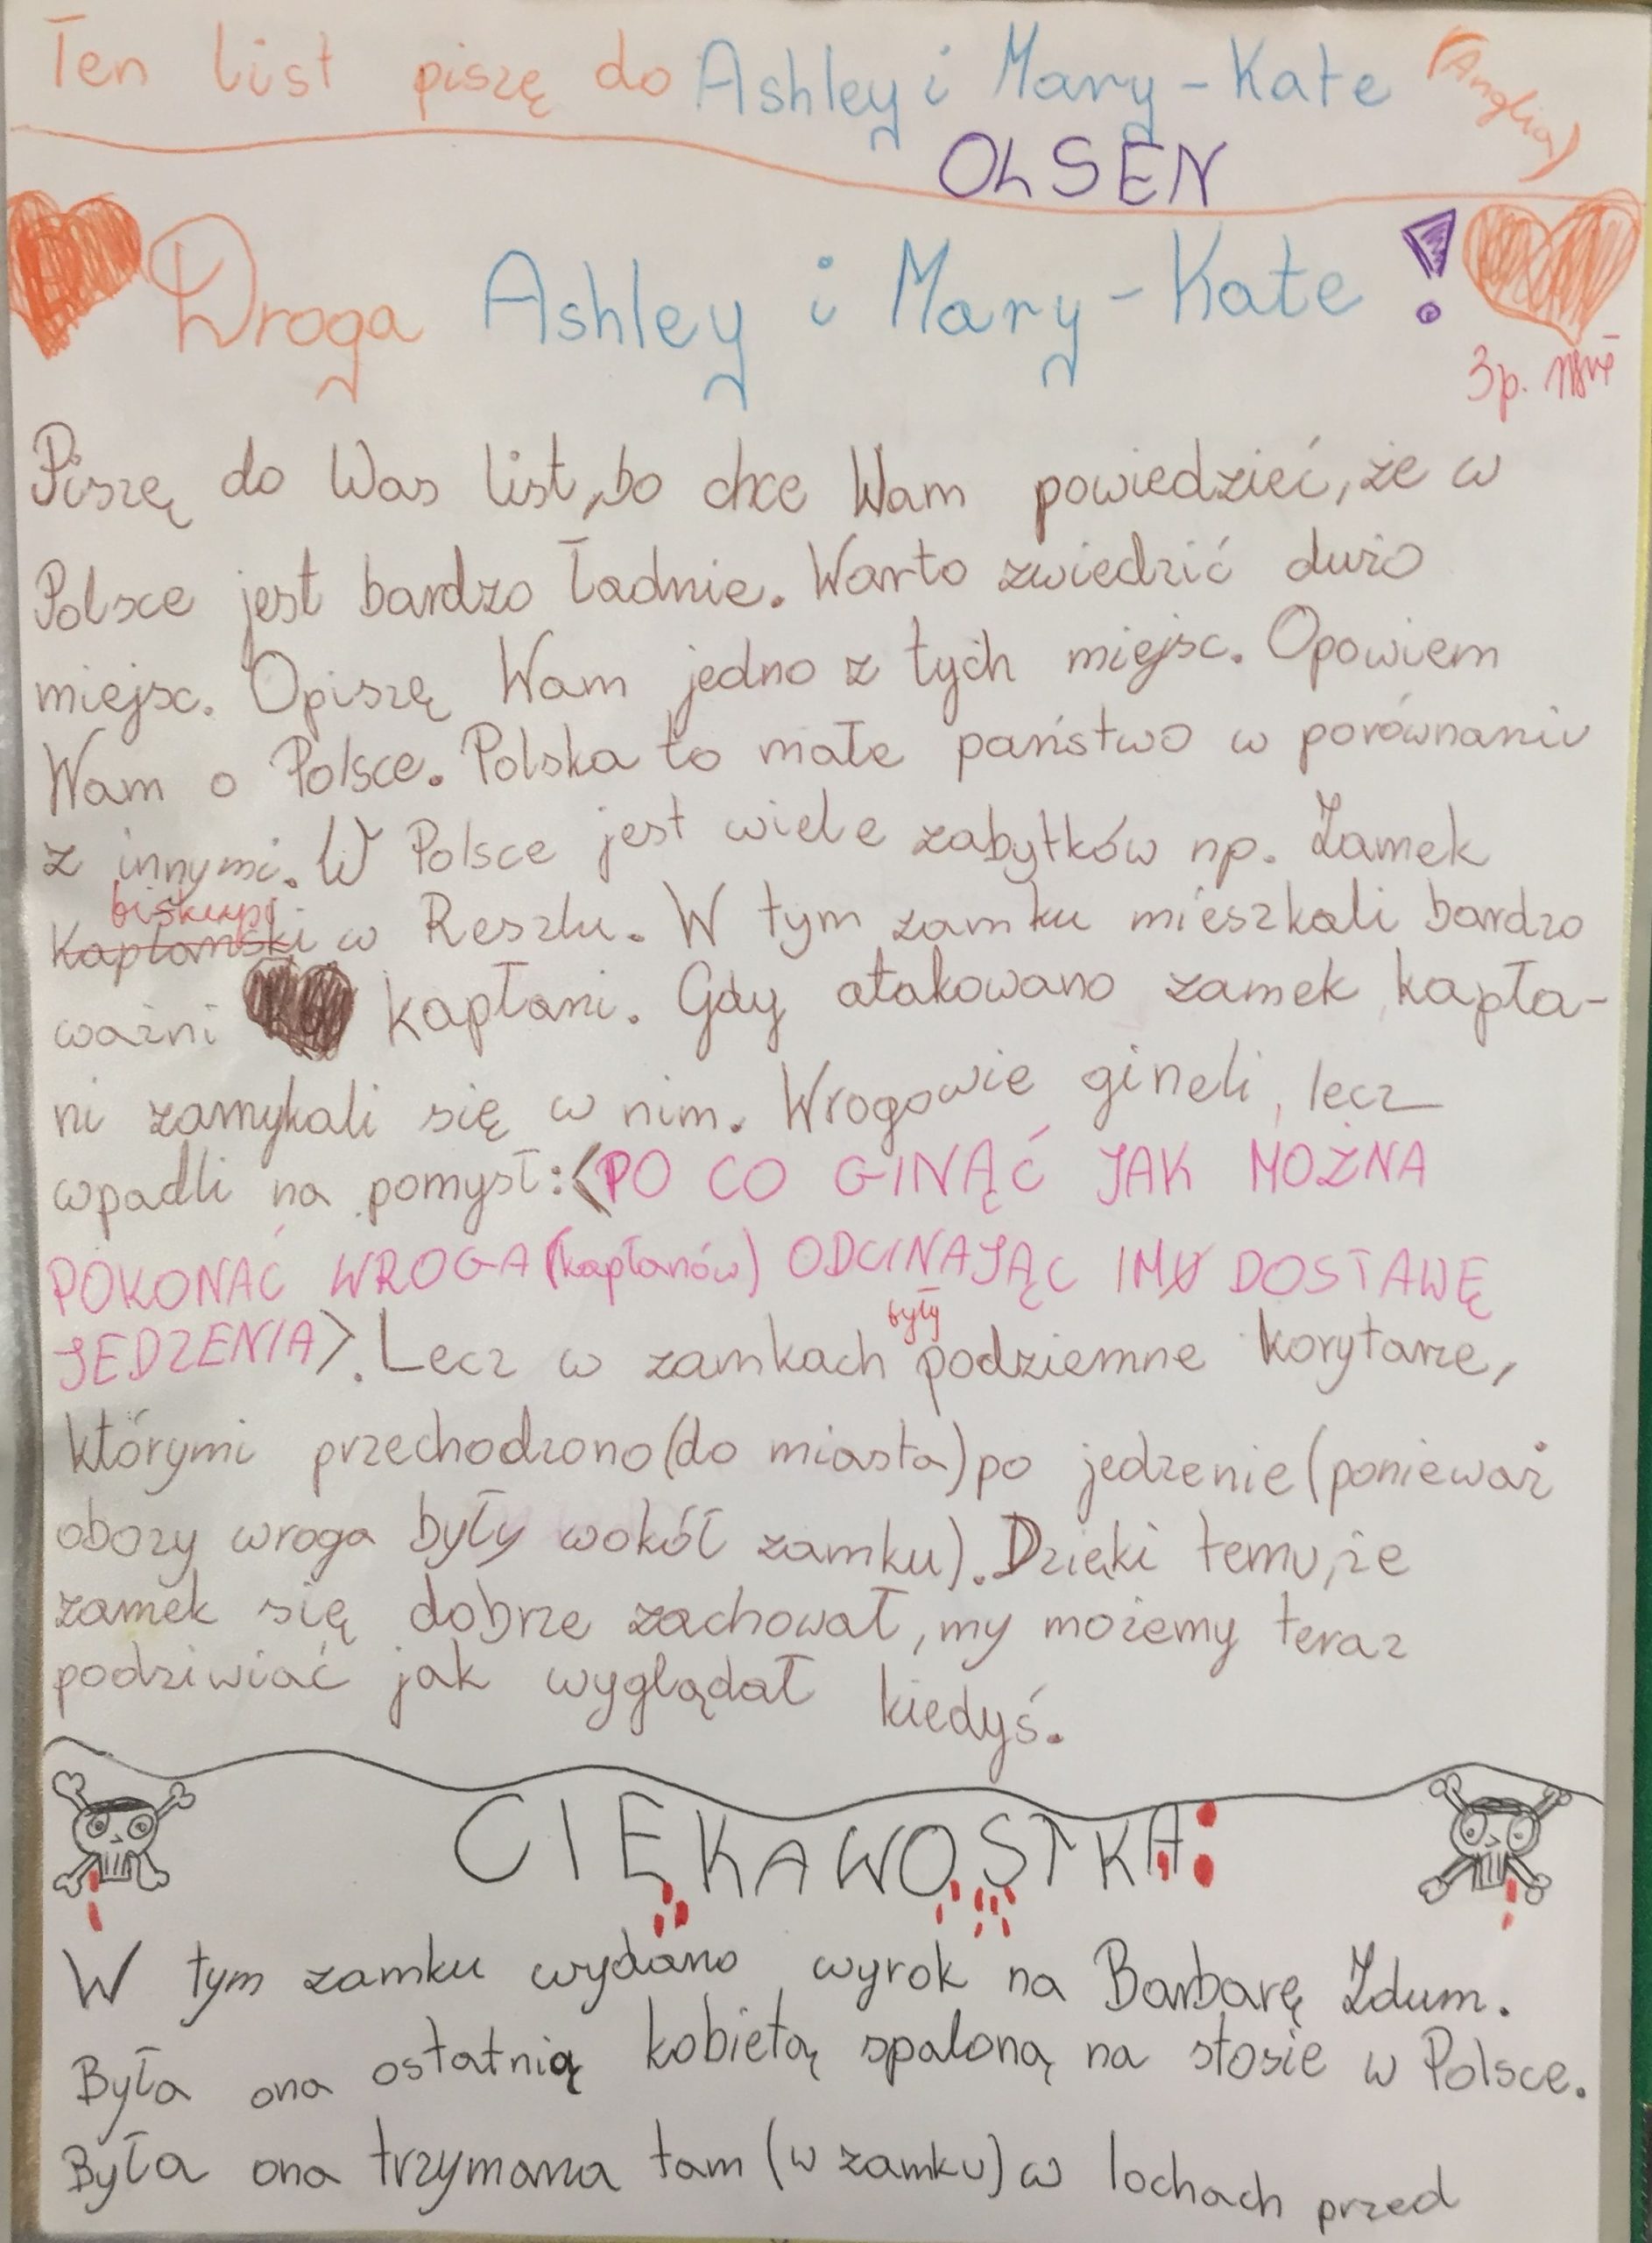 Ten list piszę do Ashley i Mary-Kate (Anglia)
OLSEN
Droga Ashley i Mary-Kate!
3p.
Piszę do Was list, bo chce Wam powiedzieć, że w
Polsce jest bardzo ładnie. Warto zwiedzić dużo
miejsc. Opiszę Wam jedno z tych miejsc. Opowiem
Wam o Polsce. Polska to małe państwo w porównaniu
z innymi. W Polsce jest wiele zabytków np. Zamek
biskupi
Kapłański w Reszlu. W tym zamku mieszkali bardzo
ważni kapłani. Gdy atakowano zamek, kapła-
ni zamykali się w nim. Wrogowie gineli, lecz
wpadli na pomysł: <PO CO GINĄĆ JAK MOŻNA
POKONAĆ WROGA (kapłanów) ODCINAJĄC IM DOSTAWĘ
JEDZENIA>. Lecz w zamkach były podziemne korytarze,
którymi przechodzono (do miasta) po jedzenie (ponieważ
obozy wroga były wokół zamku). Dzięki temu, że
zamek się dobrze zachował, my możemy teraz
podziwiać jak wyglądał kiedyś.
CIEKAWOSTKA:
W tym zamku wydano wyrok na Barbarę Zdum.
Była ona ostatnią kobietą spaloną na stosie w Polsce.
Była ona trzymana tam (w zamku) w lochach przed